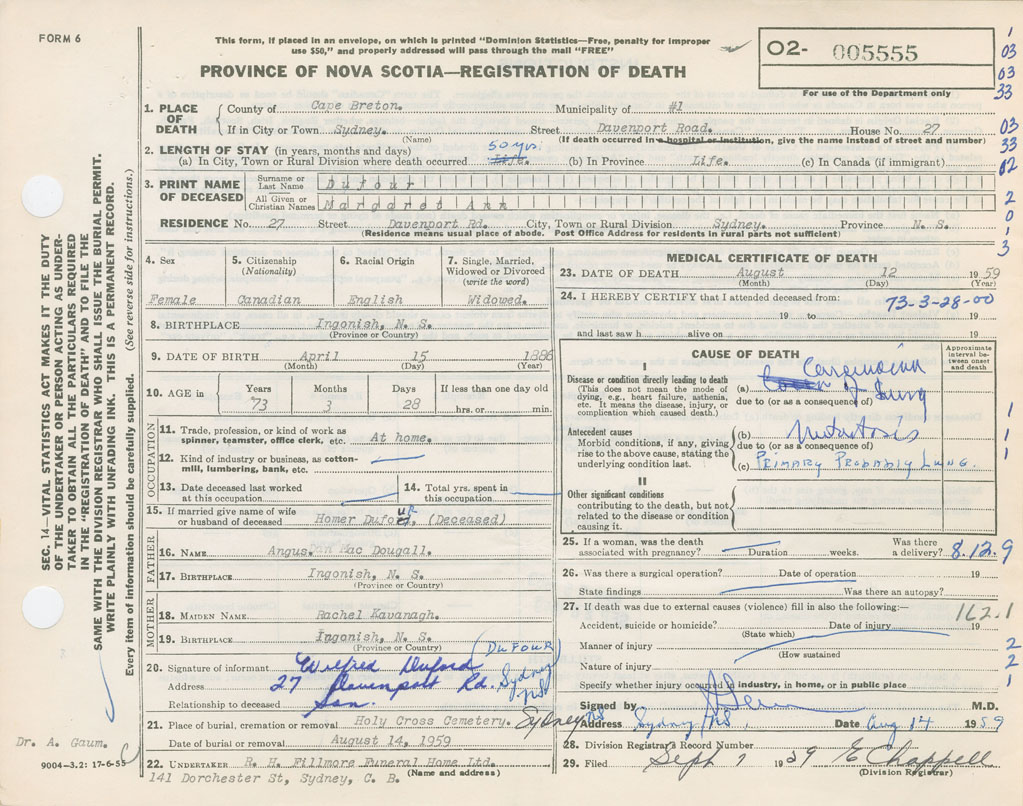 FORM 6
This form, if placed in an envelope, on which is printed "Dominion Statistics—Free, penalty for improper
use $50," and properly addressed will pass through the mail "FREE"
O2- 005555
For use of the Department only
PROVINCE OF NOVA SCOTIA—REGISTRATION OF DEATH
1. PLACE OF DEATH County of Cape Breton. Municipality of #1
If in City or Town Sydney. Street Davenport Road. House No. 27
(Name) (If death occurred in a hospital or institution, give the name instead of street and number)
2. LENGTH OF STAY (in years, months and days)
(a) In City, Town or Rural Division where death occurred 50 yrs. Life. (b) In Province Life. (c) In Canada (if immigrant)
3. PRINT NAME OF DECEASED Surname or Last Name Dufour
All Given or Christian Names Margaret Ann
RESIDENCE No. 27 Street Davenport Rd. City, Town or Rural Division Sydney. Province N. S.
(Residence means usual place of abode. Post Office Address for residents in rural parts not sufficient)
4. Sex 5. Citizenship (Nationality) 6. Racial Origin 7. Single, Married, Widowed or Divorced (write the word)
Female Canadian English Widowed.
8. BIRTHPLACE Ingonish, N. S.
(Province or Country)
9. DATE OF BIRTH April 15 1886
(Month) (Day) (Year)
10. AGE in Years Months Days If less than one day old
73 3 28 hrs. or min.
OCCUPATION
11. Trade, profession, or kind of work as spinner, teamster, office clerk, etc. At home.
12. Kind of industry or business, as cotton-mill, lumbering, bank, etc.
13. Date deceased last worked at this occupation 14. Total yrs. spent in this occupation
15. If married give name of wife or husband of deceased Homer Dufour, (Deceased)
FATHER
16. NAME Angus Mac Dougall.
17. BIRTHPLACE Ingonish, N. S.
(Province or Country)
MOTHER
18. MAIDEN NAME Rachel Kavanagh.
19. BIRTHPLACE Ingonish, N. S.
(Province or Country)
20. Signature of informant Wilfred Duford (DUFOUR)
Address 27 Davenport Rd. Sydney NS
Relationship to deceased Son.
21. Place of burial, cremation or removal Holy Cross Cemetery. Sydney NS
Date of burial or removal August 14, 1959
22. UNDERTAKER R. H. Fillmore Funeral Home Ltd.
141 Dorchester St, Sydney, C. B. (Name and address)
MEDICAL CERTIFICATE OF DEATH
23. DATE OF DEATH August 12 1959
(Month) (Day) (Year)
24. I HEREBY CERTIFY that I attended deceased from: 73-3-28-00
19 to 19
and last saw h alive on 19
CAUSE OF DEATH
Approximate interval between onset and death
I
Disease or condition directly leading to death
(This does not mean the mode of dying, e.g., heart failure, asthenia, etc. It means the disease, injury, or complication which caused death.)
(a) Carcinoma of Lung
due to (or as a consequence of)
Antecedent causes
Morbid conditions, if any, giving rise to the above cause, stating the underlying condition last.
(b) Metastasis
due to (or as a consequence of)
(c) PRIMARY PROBABLY LUNG.
II
Other significant conditions
contributing to the death, but not related to the disease or condition causing it.
25. If a woman, was the death associated with pregnancy? Duration weeks. Was there a delivery? 8.12.9
26. Was there a surgical operation? Date of operation 19
State findings Was there an autopsy?
27. If death was due to external causes (violence) fill in also the following:— 162.1
Accident, suicide or homicide? Date of injury 19
(State which)
Manner of injury
(How sustained
Nature of injury
Specify whether injury occurred in industry, in home, or in public place
Signed by M.D.
Address Sydney NS Date Aug 14 1959
28. Division Registrar's Record Number
29. Filed Sept 1 1959 E Chappell
(Division Registrar)
1
03
03
33
03
33
02
2
0
3
1
1
1
2
2
1
SEC. 14—VITAL STATISTICS ACT MAKES IT THE DUTY
OF THE UNDERTAKER OR PERSON ACTING AS UNDER-
TAKER TO OBTAIN ALL THE PARTICULARS REQUIRED
IN THE "REGISTRATION OF DEATH" AND TO FILE THE
SAME WITH THE DIVISION REGISTRAR WHO SHALL ISSUE THE BURIAL PERMIT.
WRITE PLAINLY WITH UNFADING INK. THIS IS A PERMANENT RECORD.
Every item of information should be carefully supplied. (See reverse side for instructions.)
Dr. A. Gaum.
9004-3.2: 17-6-55